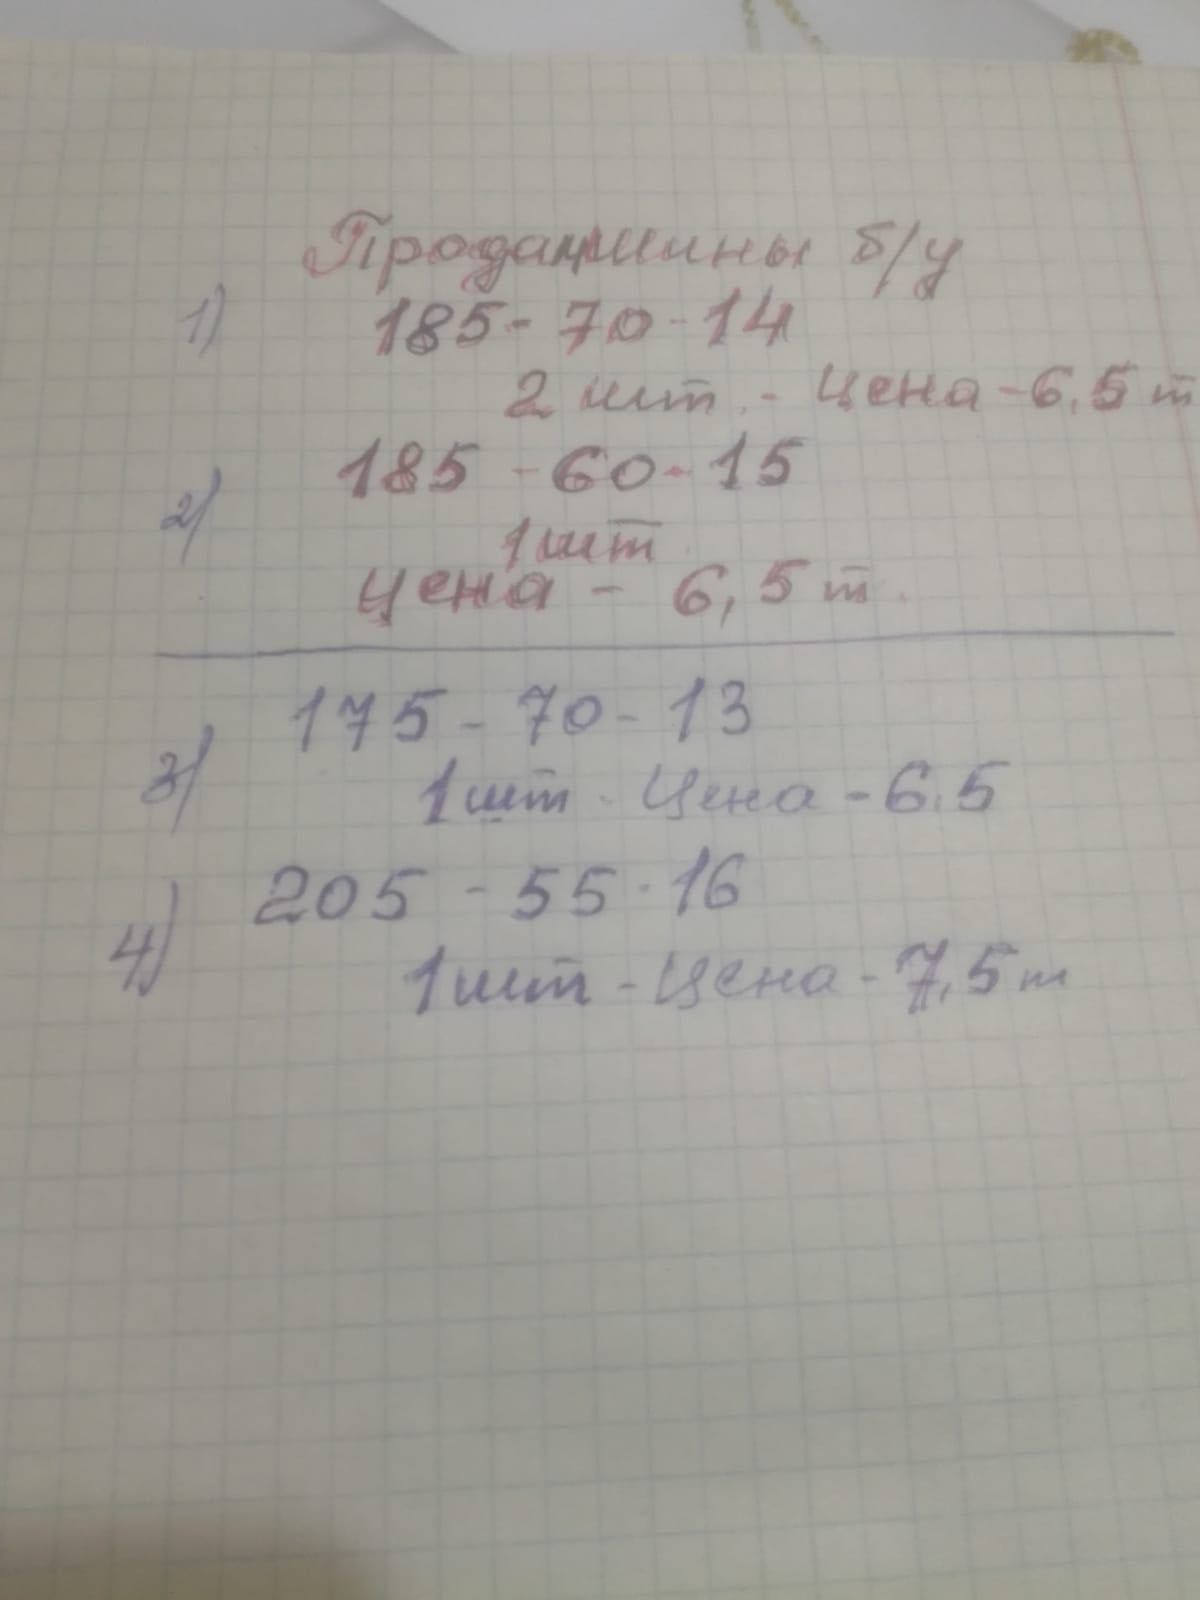 Продам шины б/у
1) 185 - 70 - 14
2 шт. - Цена - 6,5 т
2) 185 - 60 - 15
1 шт.
Цена - 6,5 т.
3) 175 - 70 - 13
1 шт - Цена - 6.5
4) 205 - 55 - 16
1 шт - Цена - 7,5 т